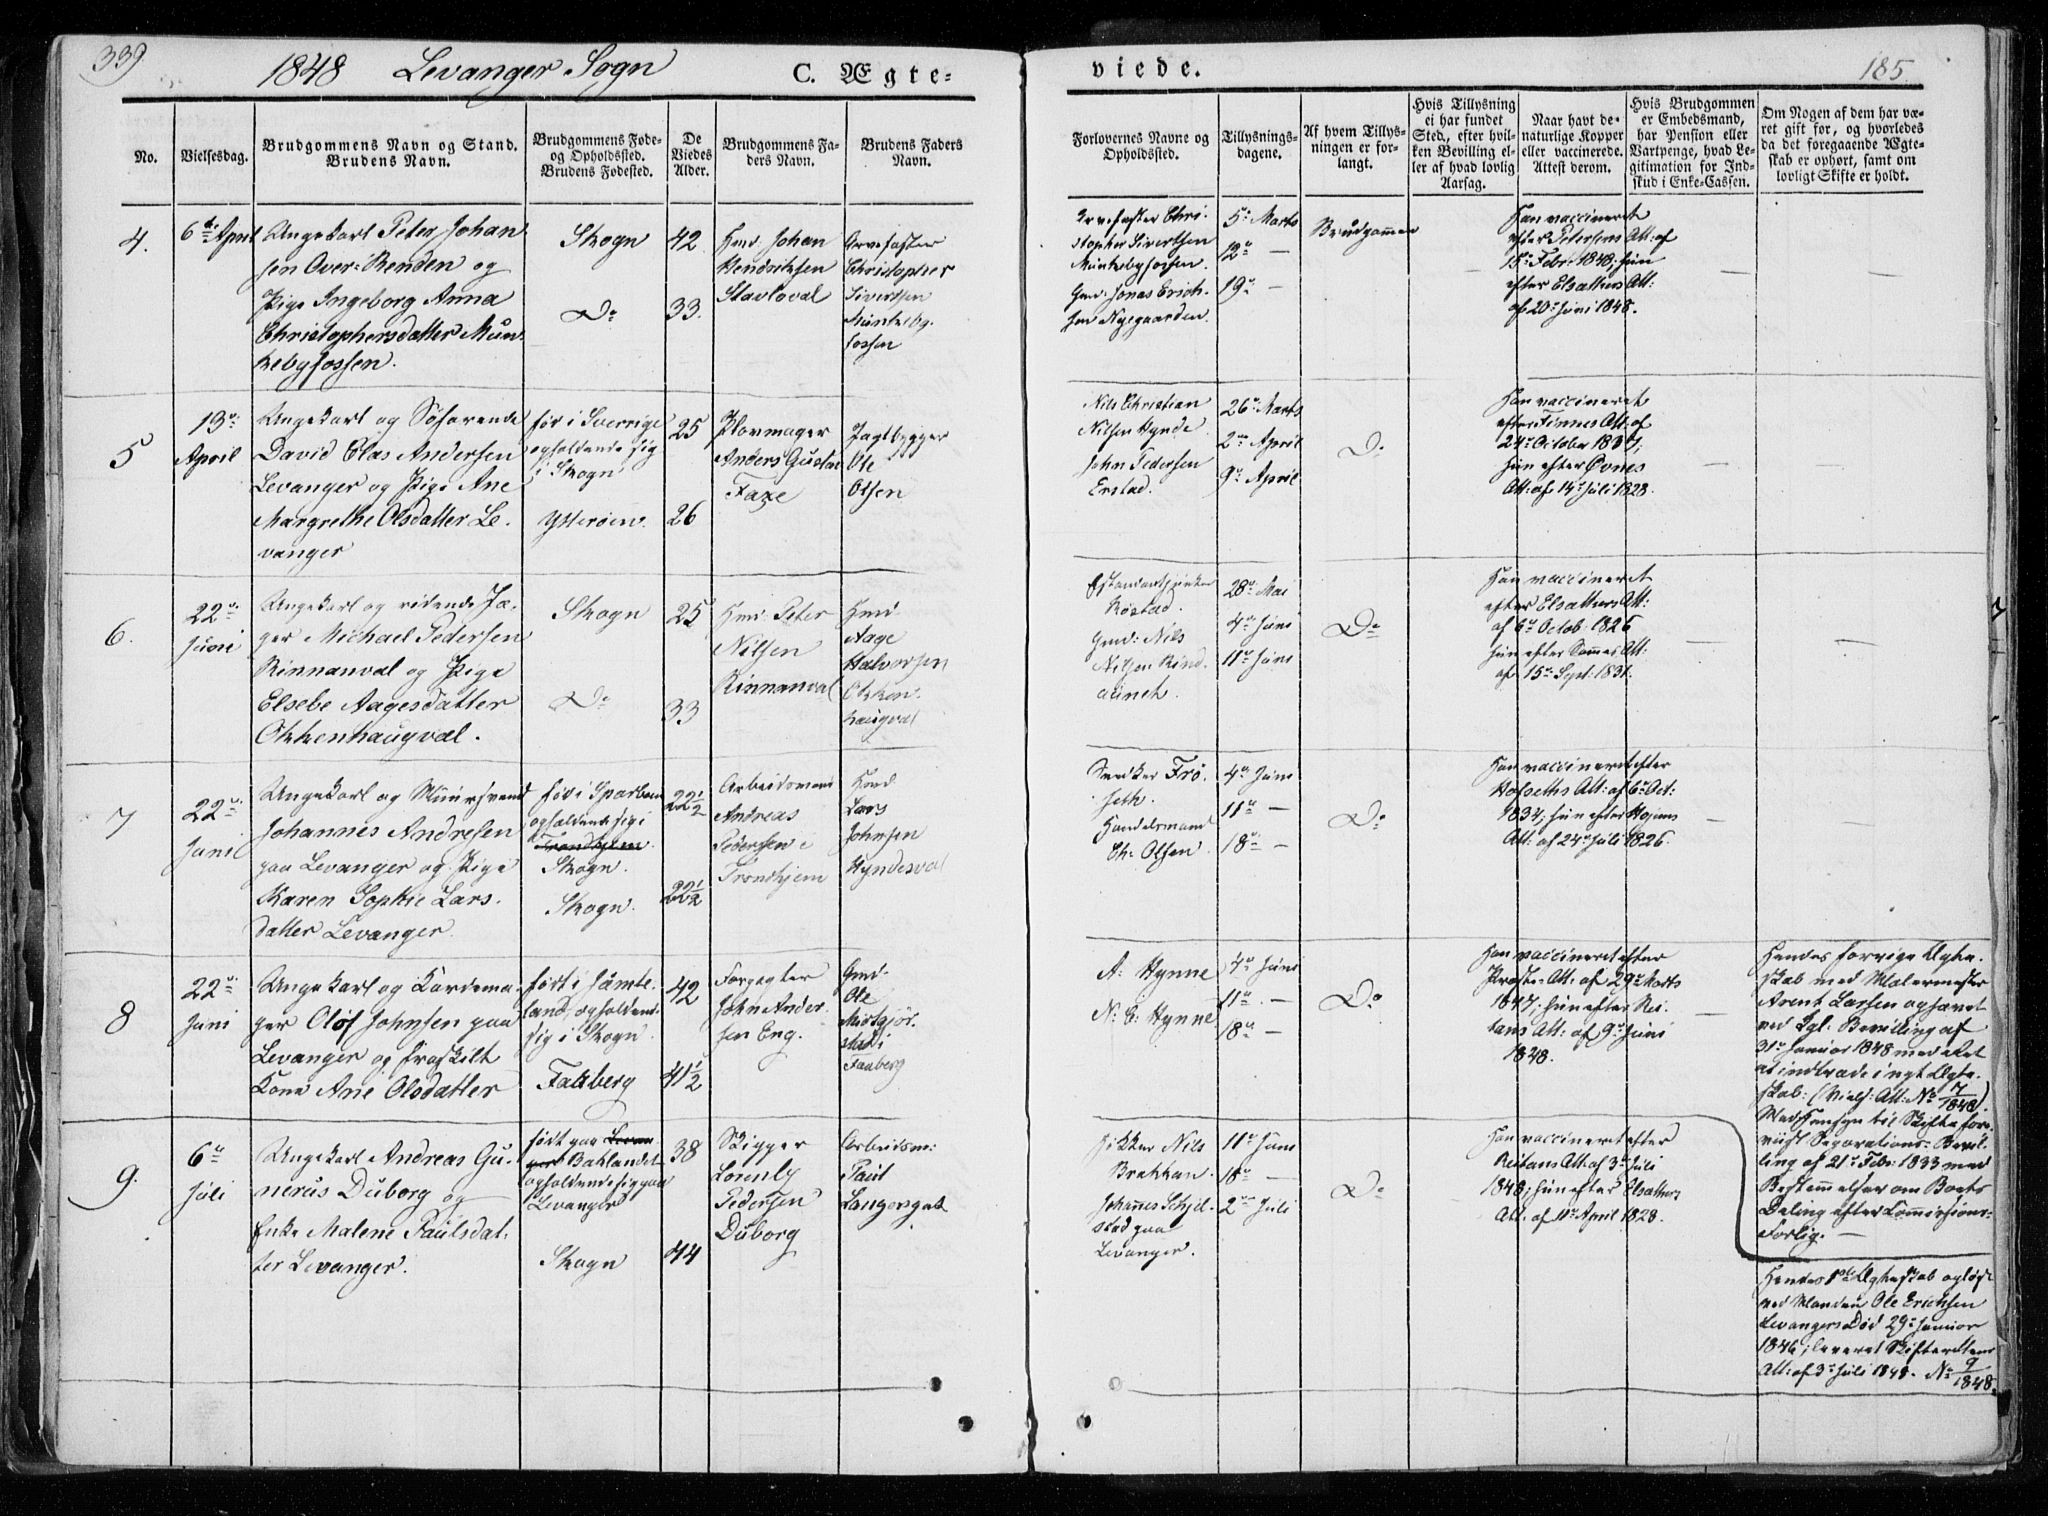 339
1848 Levanger Sogn
C. Ægte-
viede.
185
No.
Vielsesdag.
Brudgommens Navn og Stand.
Brudens Navn.
Brudgommens Føde-
og Opholdssted.
Brudens Fødested.
De
Viedes
Alder.
Brudgommens Fa-
ders Navn.
Brudens Faders
Navn.
Forlovernes Navne og
Opholdssted.
Tillysnings-
dagene.
Af hvem Tillys-
ningen er for-
langt.
Hvis Tillysning
ei har fundet
Sted, efter hvil-
ken Bevilling el-
ler af hvad lovlig
Aarsag.
Naar havt de na-
turlige Kopper
eller vaccinerede.
Attest derom.
Hvis Brudgommen
er Embedsmand,
har Pension eller
Vartpenge, hvad Le-
gitimation for Ind-
skud i Enke-Cassen.
Om Nogen af dem har væ-
ret gift før, og hvorledes
da det foregaaende Ægte-
skab er ophørt, samt om
lovligt Skifte er holdt.
4.
6te April
Ungekarl Peter Johan
sen Over-Renden og
Pige Ingeborg Anna
Christophersdatter Mun-
kebyfossen.
Skogn
Do
42
33.
Hmd: Johan
Hendriksen
Stavloval
Arvefæster
Christopher
Sivertsen
Munkeby-
fossen
Arvefæster Chri-
stopher Sivertsen
Munkebyfossen.
Gmd: Jonas Erich-
sen Nyegaarden.
5te Marts
12te —
19de —
Brudgommen
Han vaccineret
efter Petersens Att: af
15de Febr: 1848; hun
efter Elsathers Att:
af 20de Juni 1848.
5
13de
April
Ungekarl og Søfarende
David Elas Andersen
Levanger og Pige Ane
Margrethe Olsdatter Le-
vanger
fød i Sverrige
opholdende sig
i Skogn
Ytterøen.
25
26
Plovmager
Anders Gustav
Faxe
Jagtbygger
Ole
Olsen
Nils Christian
Nilsen Hynde
John Pedersen
Erstad.
26de Marts
2den April
9de April
Do
Han vaccineret
efter Finnes Att: af
24de October 1837;
hun efter Øvnes
Att: af 14de Juli 1828.
6.
22de
Juni
Ungekarl og ridende Jæ-
ger Michael Pedersen
Rinnanval og Pige
Elsebe Aagesdatter
Okkenhaugval.
Skogn
Do
25
33
Hmd: Peter
Nilsen
Rinnanval
Hmd
Aage
Halvorsen
Okken-
haugval
Røstad.
Gmd: Nils
Nilsen Rind-
aunet.
28de Mai
4de Juni
11te Juni
Do
Han vaccineret
efter Elsathers Att:
af 6te Octob: 1826
hun efter Sammes Att:
af 15de Sept: 1831.
7
22de
Juni
Ungekarl og Muursvend
Johannes Andresen
paa Levanger og Pige
Karen Sophie Lars-
datter Levanger.
fød i Sparboen
opholdende sig i
Trondhjem
Skogn.
Skogn.
22½
22½
Arbeidsmand
Andreas
Pedersen i
Trondhjem
Hmd
Lars
Johnsen
Hyndesval
Snedker Frø-
seth.
Handelsmand
Ch: Olsen.
4de Juni
11te —
18de —
Do
Han vaccineret efter
Holseths Att: af 6te Oct:
1834; hun efter Hojems
Att: af 24de Juli 1826.
8
22de
Juni
Ungekarl og Kardema-
ger Olof Johnsen paa
Levanger og fraskilt
Kone Ane Olsdatter
født i Jämte-
land, opholdende
sig i Skogn.
Faaberg
42
41½
Forpagter
John Ander-
sen Eng.
Gmd.
Ole
stad i
Faaberg
A: Hynne
N: E: Hynne
4de Juni
11te —
18de —
Do
Han vaccineret efter
Att: af 29de Marts
1847; hun efter Rei-
tans Att: af 9de Juni
1848.
Hendes forrige Ægte-
skab med Malermester
Arent Larsen ophævet
ved Kgl: Bevilling af
31te Januar 1848 med Ret
at indtræde i nyt Ægte-
skab: (Viels: Att: No 7/1848)
Med Hensyn til Skifte fore-
viist Separations-Bevil-
ling af 21de Febr: 1833 med
Bestemmelser om Boets
Deling efter Commissions-
Forlig. —
9.
6te
Juli
Ungekarl Andreas Gu-
nerus Duborg og
Enke Malene Paulsdat-
ter Levanger.
født paa Levan-
ger Baklandet
opholdende sig paa
Levanger
Skogn
38
44
Skipper
Lorents
Pedersen
Duborg
Arbeidsm:
Paul
Nils
Brakhan.
Johannes Schjel-
stad paa
Levanger.
11te Juni
18de —
2den Juli
Do
Han vaccineret efter
Reitans Att: af 3de Juli
1848; hun efter Elsathers
Att: af 11te April 1828.
Hendes 1ste Ægteskab opløst
ved Manden Ole Erichsen
Levangers Død 29de Januar
1846; leveret Skifterettens
Att: af 3de Juli 1848. No 9/1848.